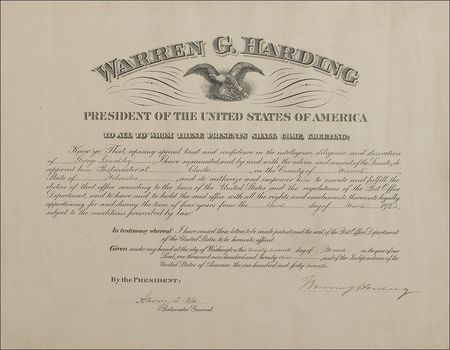 WARREN G. HARDING
PRESIDENT OF THE UNITED STATES OF AMERICA
TO ALL TO WHOM THESE PRESENTS SHALL COME, GREETING:
Know ye, That reposing special trust and confidence in the intelligence, diligence and discretion
of George I have nominated, and by and with the advice and consent of the Senate, do
appoint him Postmaster at Clarks, in the County of Merrick,
State of Nebraska, and do authorize and empower him to execute and fulfill the
duties of that office according to the laws of the United States and the regulations of the Post Office
Department, and to have and to hold the said office with all the rights and emoluments thereunto legally
appertaining, for and during the term of four years from the third day of March 1923,
subject to the conditions prescribed by law.
In testimony whereof I have caused these letters to be made patent and the seal of the Post Office Department
of the United States to be hereunto affixed.
Given under my hand at the city of Washington the twenty seventh day of March in the year of our
Lord, one thousand nine hundred and twenty three and of the Independence of the
United States of America the one hundred and forty-seventh.
By the PRESIDENT:
Warren G Harding
Harry S. New
Postmaster General.